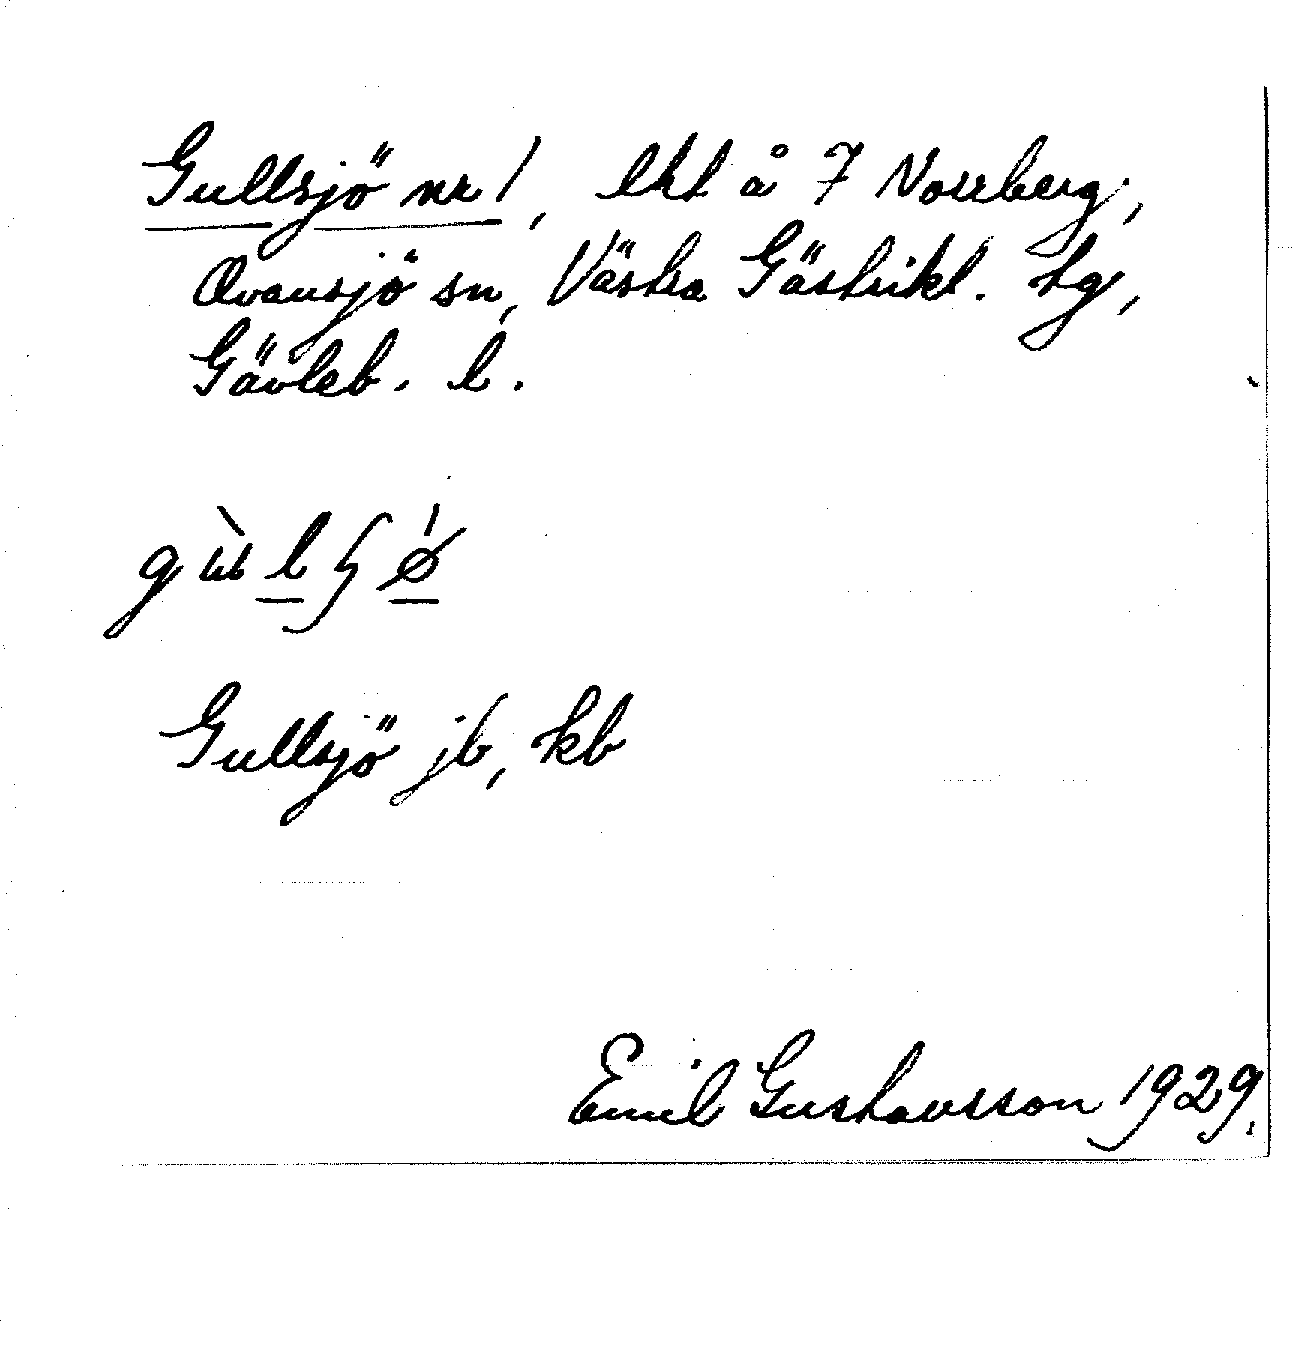 Gullsjö nr 1, lht å 7 Norrberg,
Ovansjö sn, Västra Gästrikl. tg,
Gävleb. l.
Gullsjö jb, kb
Emil Gustavsson 1929.